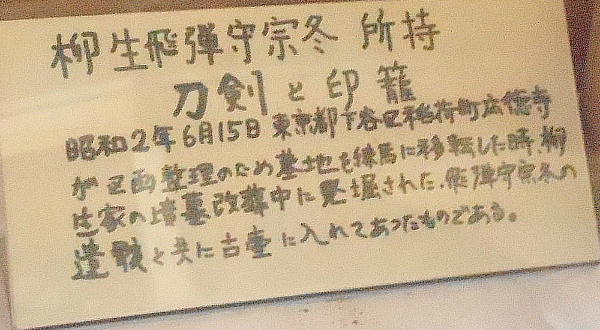 柳生飛弾守宗冬 所持
刀剣と印籠
昭和2年6月15日 東京都下谷区稲荷町広徳寺
が区画整理のため墓地を練馬に移転した時、柳
生家の墳墓改葬中に発掘された、飛弾守宗冬の
遺骸と共に古壷に入れてあったものである。